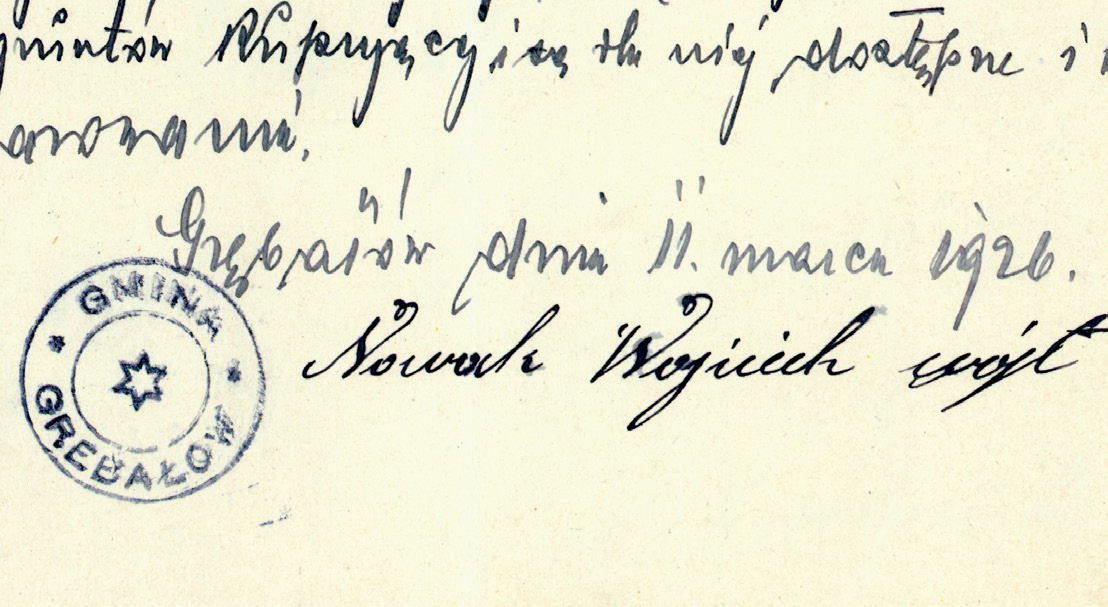 gruntów Kupujący, są dla niej dostępne i
Grębałów dnia 11. marca 1926.
GMINA
GRĘBAŁÓW
Nowak Wojciech wójt